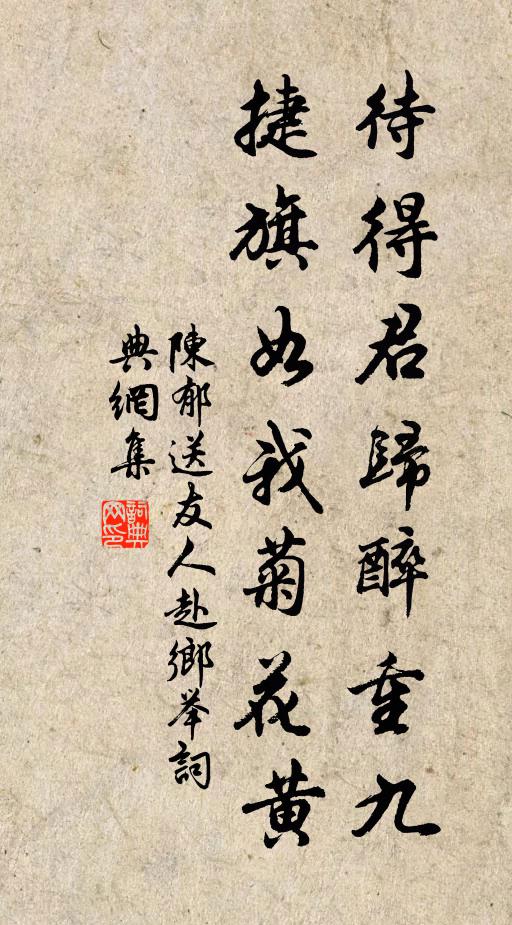 待得君歸醉重九
捷旗如我菊花黄
陳郁送友人赴鄉举詞
典網集
詞典
网印